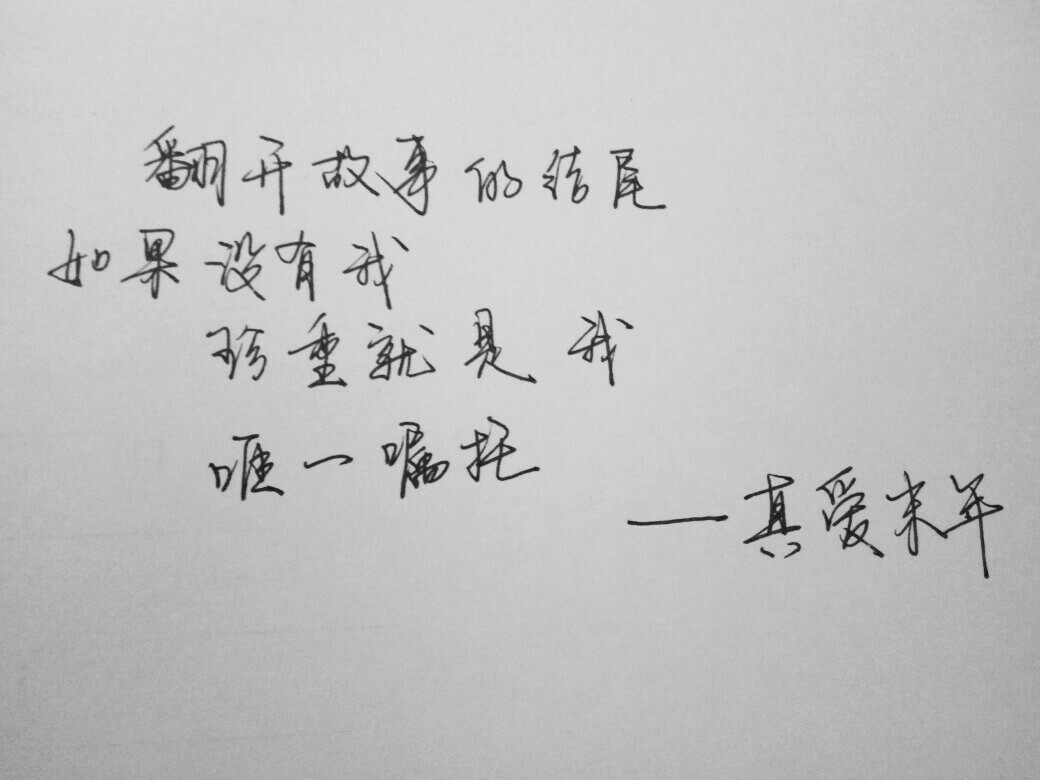 翻开故事的结尾
如果没有我
珍重就是我
唯一嘱托
——真爱末年